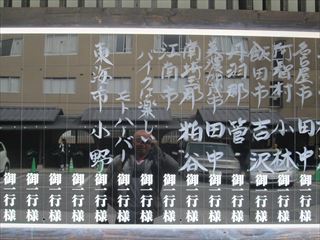 名古屋市 田中 御一行様
阿智村 小林 御一行様
飯田市 吉沢 御一行様
丹羽郡 菅 御一行様
田中 御一行様
南埼玉郡 粕谷 御一行様
江南市 御一行様
バイクは楽し 御一行様
モトハーバー 御一行様
東海市 小野 御一行様
御一行様
御一行様